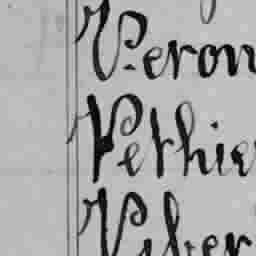 Veron
Pethie
Viber